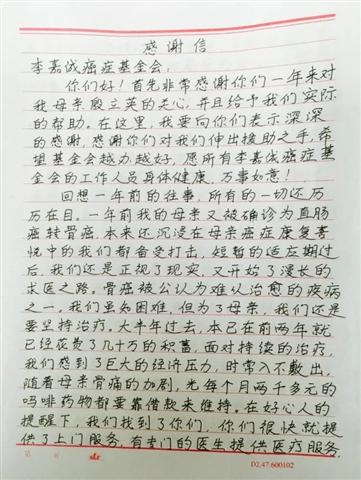 感谢信
李嘉诚癌症基金会:
你们好！首先非常感谢你们一年来对
我母亲殷立英的关心，并且给予我们实际
的帮助。在这里，我要向你们表示深深
的感谢，感谢你们对我们伸出援助之手，希
望基金会越办越好，愿所有李嘉诚癌症基
金会的工作人员身体健康，万事如意！
回想一年前的往事，所有的一切还历
历在目。一年前我的母亲又被确诊为直肠
癌转骨癌，本来还沉浸在母亲癌症康复喜
悦中的我们都备受打击，短暂的适应期过
后，我们还是正视了现实，又开始了漫长的
求医之路。骨癌被公认为难以治愈的疾病
之一，我们虽知困难，但为了母亲，我们还是
要坚持治疗，大半年过去，本已在前两年就
已经花费了几十万的积蓄，面对持续的治疗，
我们感到了巨大的经济压力，时常入不敷出，
随着母亲骨痛的加剧，光每个月两千多元的
吗啡药物都要靠借款来维持。在好心人的
提醒下，我们找到了你们，你们很快就提
供了上门服务，有专门的医生提供医疗服务，
第 页
D2.47.600102